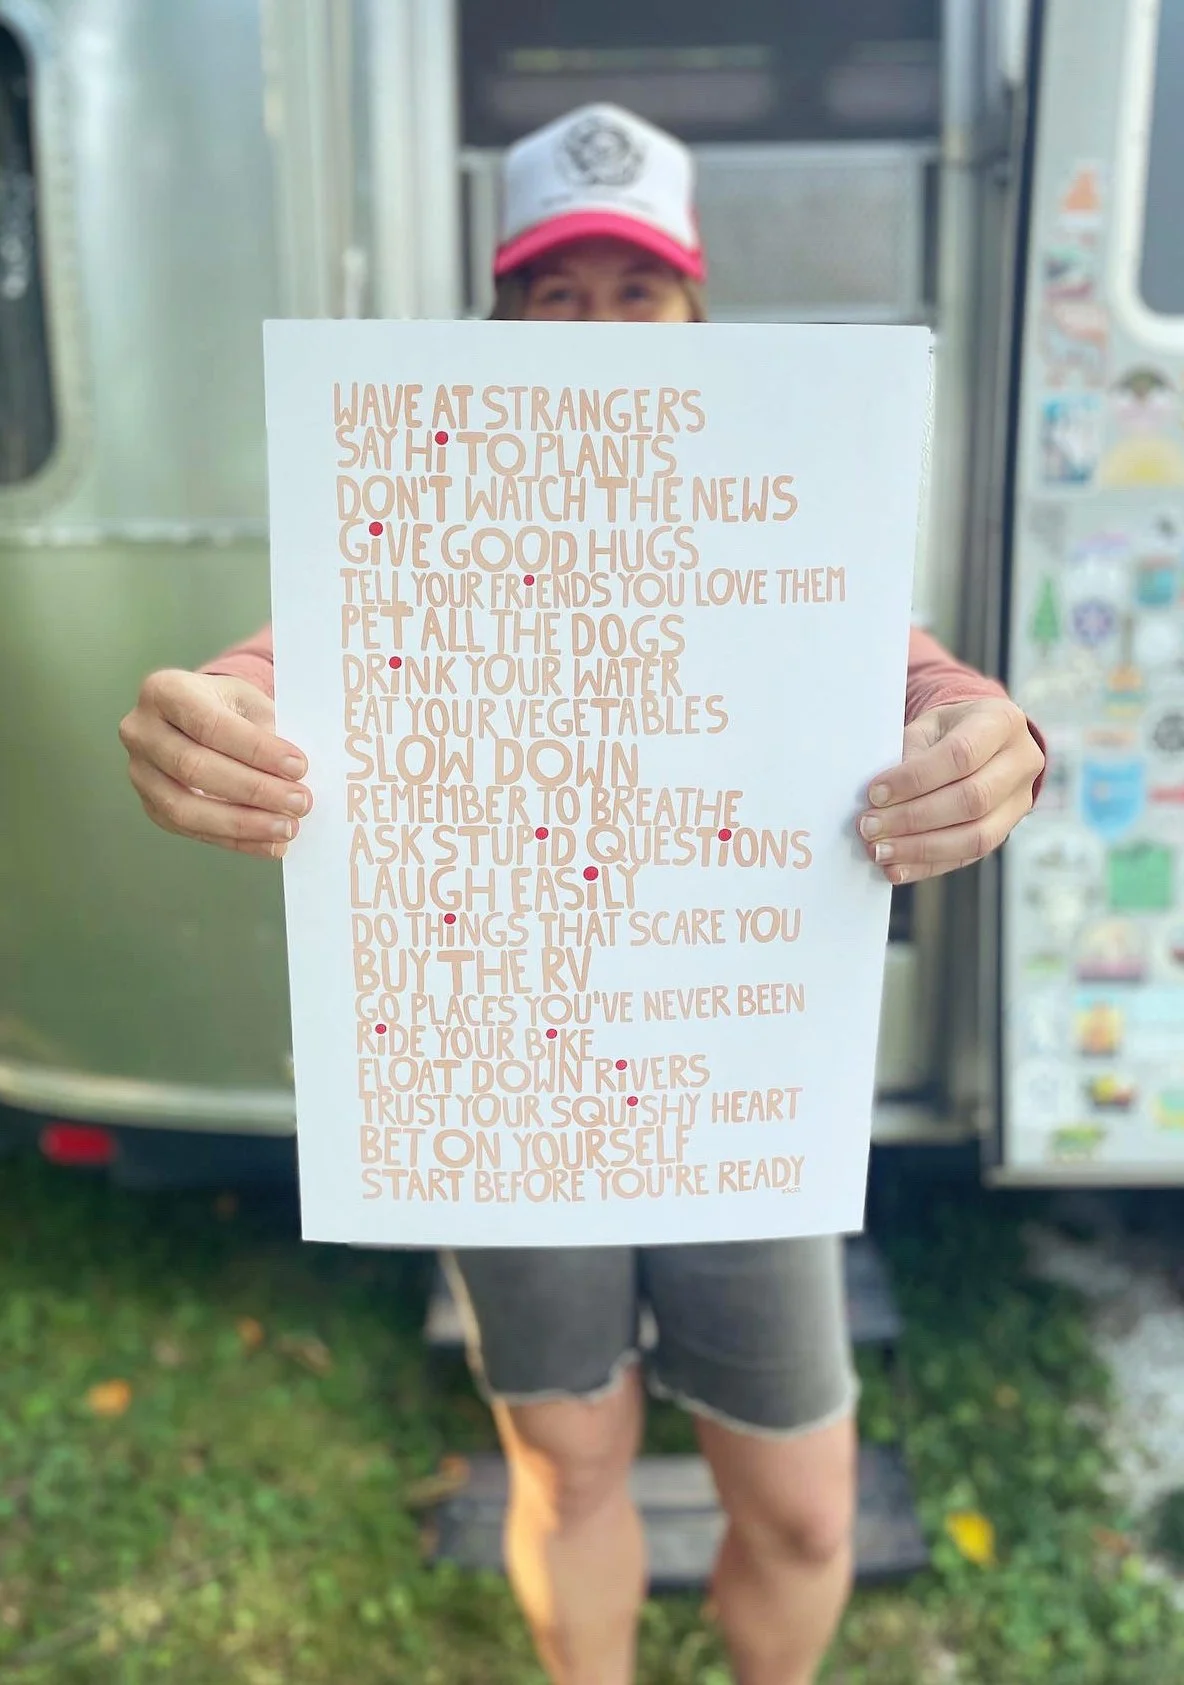 WAVE AT STRANGERS
SAY Hi TO PLANTS
DON'T WATCH THE NEWS
GiVE GOOD HUGS
TELL YOUR FRiENDS YOU LOVE THEM
PET ALL THE DOGS
DRiNK YOUR WATER
EAT YOUR VEGETABLES
SLOW DOWN
REMEMBER TO BREATHE
ASK STUPiD QUESTiONS
LAUGH EASiLY
DO THiNGS THAT SCARE YOU
BUY THE RV
GO PLACES YOU'VE NEVER BEEN
RiDE YOUR BiKE
FLOAT DOWN RiVERS
TRUST YOUR SQUiSHY HEART
BET ON YOURSELF
START BEFORE YOU'RE READY